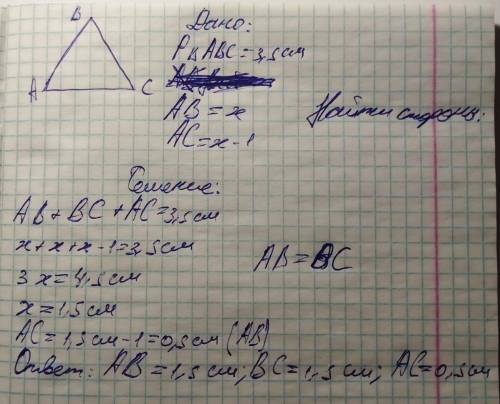 B
A C
Дано:
P△ABC=3,5см
AB=x
AC=x-1
Найти стороны:
Решение:
AB+BC+AC=3,5см
x+x+x-1=3,5см
3x=4,5см
x=1,5см
AB=BC
AC=1,5см-1=0,5см (AB)
Ответ: AB=1,5см; BC=1,5см; AC=0,5см